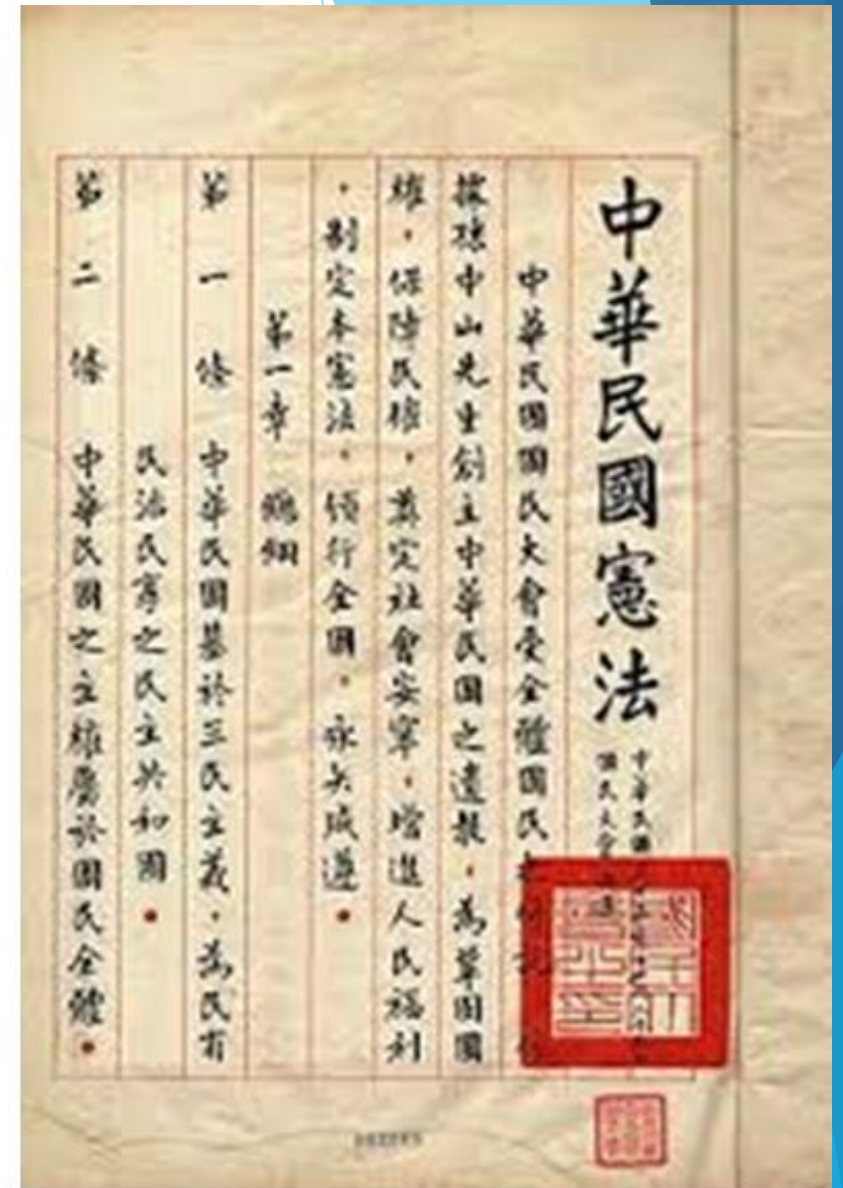 中華民國憲法
中華民國
國民大會
中華民國國民大會受全體國民
依據孫中山先生創立中華民國之遺教，為鞏固國
權，保障民權，奠定社會安寧，增進人民福利
，制定本憲法，頒行全國，永矢咸遵。
第一章　總綱
第一條　中華民國基於三民主義，為民有
民治民享之民主共和國。
第二條　中華民國之主權屬於國民全體。